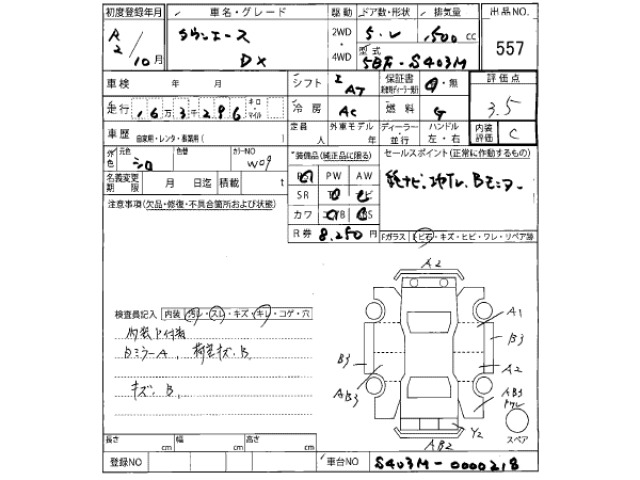 初度登録年月 車名・グレード 駆動 ドア数・形状 排気量 出品NO.
R 2/10月 タウンエース DX 2WD・4WD 5・V 1,500 cc 557
型式 5BF-S403M
車検 年 月 シフト I AT 保証書 有・無 評価点 3.5
走行 16万3千296 キロ・マイル 冷房 AC 燃料 G
車歴 自家用・レンタ・事業用( ) 定員 人 外車モデル 年 ディーラー・並行 ハンドル 左・右 内装評価 C
外色 元色 シロ 色替 カラーNO W09 装備品(純正品に限る) セールスポイント(正常に作動するもの)
名義変更期限 月 日迄 積載 t PW AW 純ナビ、地デジ、Bモニター
注意事項(欠品・修復・不具合箇所および状態) SR
カワ
R券 8,250円 Fガラス トビ石・キズ・ヒビ・ワレ・リペア跡
A2
検査員記入 内装 汚レ・スレ・キズ・キレ・コゲ・穴 A1
内装下付着 B3
BミラーA、荷室キズ、B B3 A2
キズ、B AB3 AB3 ワレ
スペア
Y2
AB2
長さ cm 幅 cm 高さ cm
登録NO 車台NO S403M-0000218